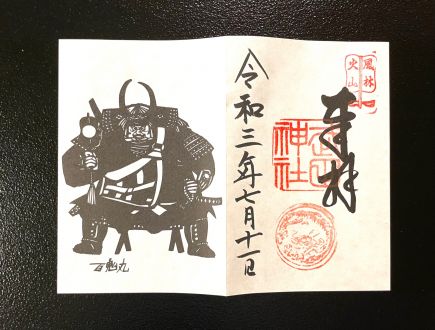 風林
火山
奉拝
武田
神社
令和三年七月十一日
百鬼丸